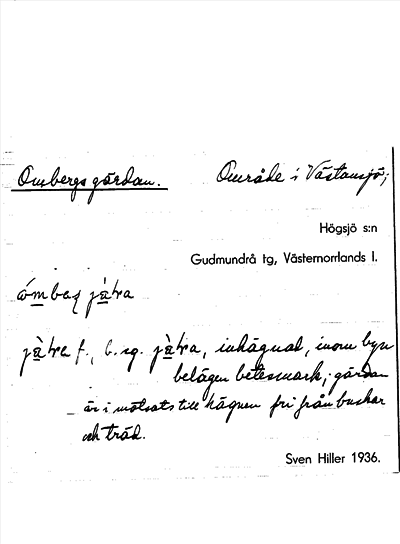 Ombergsgärdan.
Område i Västansjö;
Högsjö s:n
Gudmundrå tg, Västernorrlands l.
jàtra f., b. sg. jàtra, inhägnad, inom byn
belägen betesmark; gärdan
är i motsats till hägnen fri från buskar
och träd.
Sven Hiller 1936.